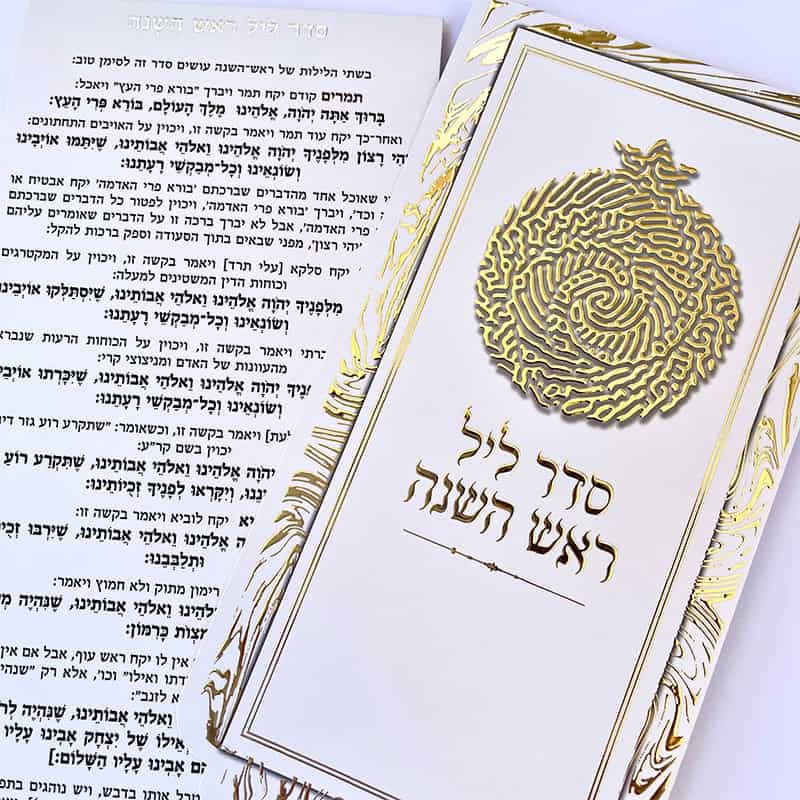 סדר ליל ראש השנה
בשתי הלילות של ראש־השנה עושים סדר זה לסימן טוב:
תמרים קודם יקח תמר ויברך "בורא פרי העץ" ויאכל:
בָּרוּךְ אַתָּה יְהֹוָה, אֱלֹהֵינוּ מֶלֶךְ הָעוֹלָם, בּוֹרֵא פְּרִי הָעֵץ:
ואחר־כך יקח עוד תמר ויאמר בקשה זו, ויכוין על האויבים התחתונים:
רָצוֹן מִלְּפָנֶיךָ יְהֹוָה אֱלֹהֵינוּ וֵאלֹהֵי אֲבוֹתֵינוּ, שֶׁיִּתַּמּוּ אוֹיְבֵינוּ
וְשׂוֹנְאֵינוּ וְכָל־מְבַקְשֵׁי רָעָתֵנוּ:
שאוכל אחד מהדברים שברכתם 'בורא פרי האדמה' יקח אבטיח או
וכד', ויברך 'בורא פרי האדמה', ויכוין לפטור כל הדברים שברכתם
פרי האדמה', אבל לא יברך ברכה זו על הדברים שאומרים עליהם
יהי רצון', מפני שבאים בתוך הסעודה וספק ברכות להקל:
יקח סלקא [עלי תרד] ויאמר בקשה זו, ויכוין על המקטרגים
וכוחות הדין המשטינים למעלה:
מִלְּפָנֶיךָ יְהֹוָה אֱלֹהֵינוּ וֵאלֹהֵי אֲבוֹתֵינוּ, שֶׁיִּסְתַּלְּקוּ אוֹיְבֵינוּ
וְשׂוֹנְאֵינוּ וְכָל־מְבַקְשֵׁי רָעָתֵנוּ:
ויאמר בקשה זו, ויכוין על הכוחות הרעות שנבראו
מהעוונות של האדם ומניצוצי קרי:
יְהֹוָה אֱלֹהֵינוּ וֵאלֹהֵי אֲבוֹתֵינוּ, שֶׁיִּכָּרְתוּ אוֹיְבֵינוּ
וְשׂוֹנְאֵינוּ וְכָל־מְבַקְשֵׁי רָעָתֵנוּ:
ויאמר בקשה זו, וכשאומר: "שתקרע רוע גזר דינ
יכוין בשם קר"ע:
יְהֹוָה אֱלֹהֵינוּ וֵאלֹהֵי אֲבוֹתֵינוּ, שֶׁתִּקְרַע רוֹעַ
וְיִקָּרְאוּ לְפָנֶיךָ זְכֻיּוֹתֵינוּ:
יקח לוביא ויאמר בקשה זו:
אֱלֹהֵינוּ וֵאלֹהֵי אֲבוֹתֵינוּ, שֶׁיִּרְבּוּ
וּתְלַבְּבֵנוּ:
רימון מתוק ולא חמוץ ויאמר:
וֵאלֹהֵי אֲבוֹתֵינוּ, שֶׁנִּהְיֶה
מִצְווֹת כָּרִמּוֹן:
אין לו יקח ראש עוף, אבל אם אין
ואילו" וכו', אלא רק "שנהיה
לזנב":
וֵאלֹהֵי אֲבוֹתֵינוּ, שֶׁנִּהְיֶה
אֵילוֹ שֶׁל יִצְחָק אָבִינוּ עָלָיו
אָבִינוּ עָלָיו הַשָּׁלוֹם:]
אותו בדבש, ויש נוהגים
סדר ליל
ראש השנה